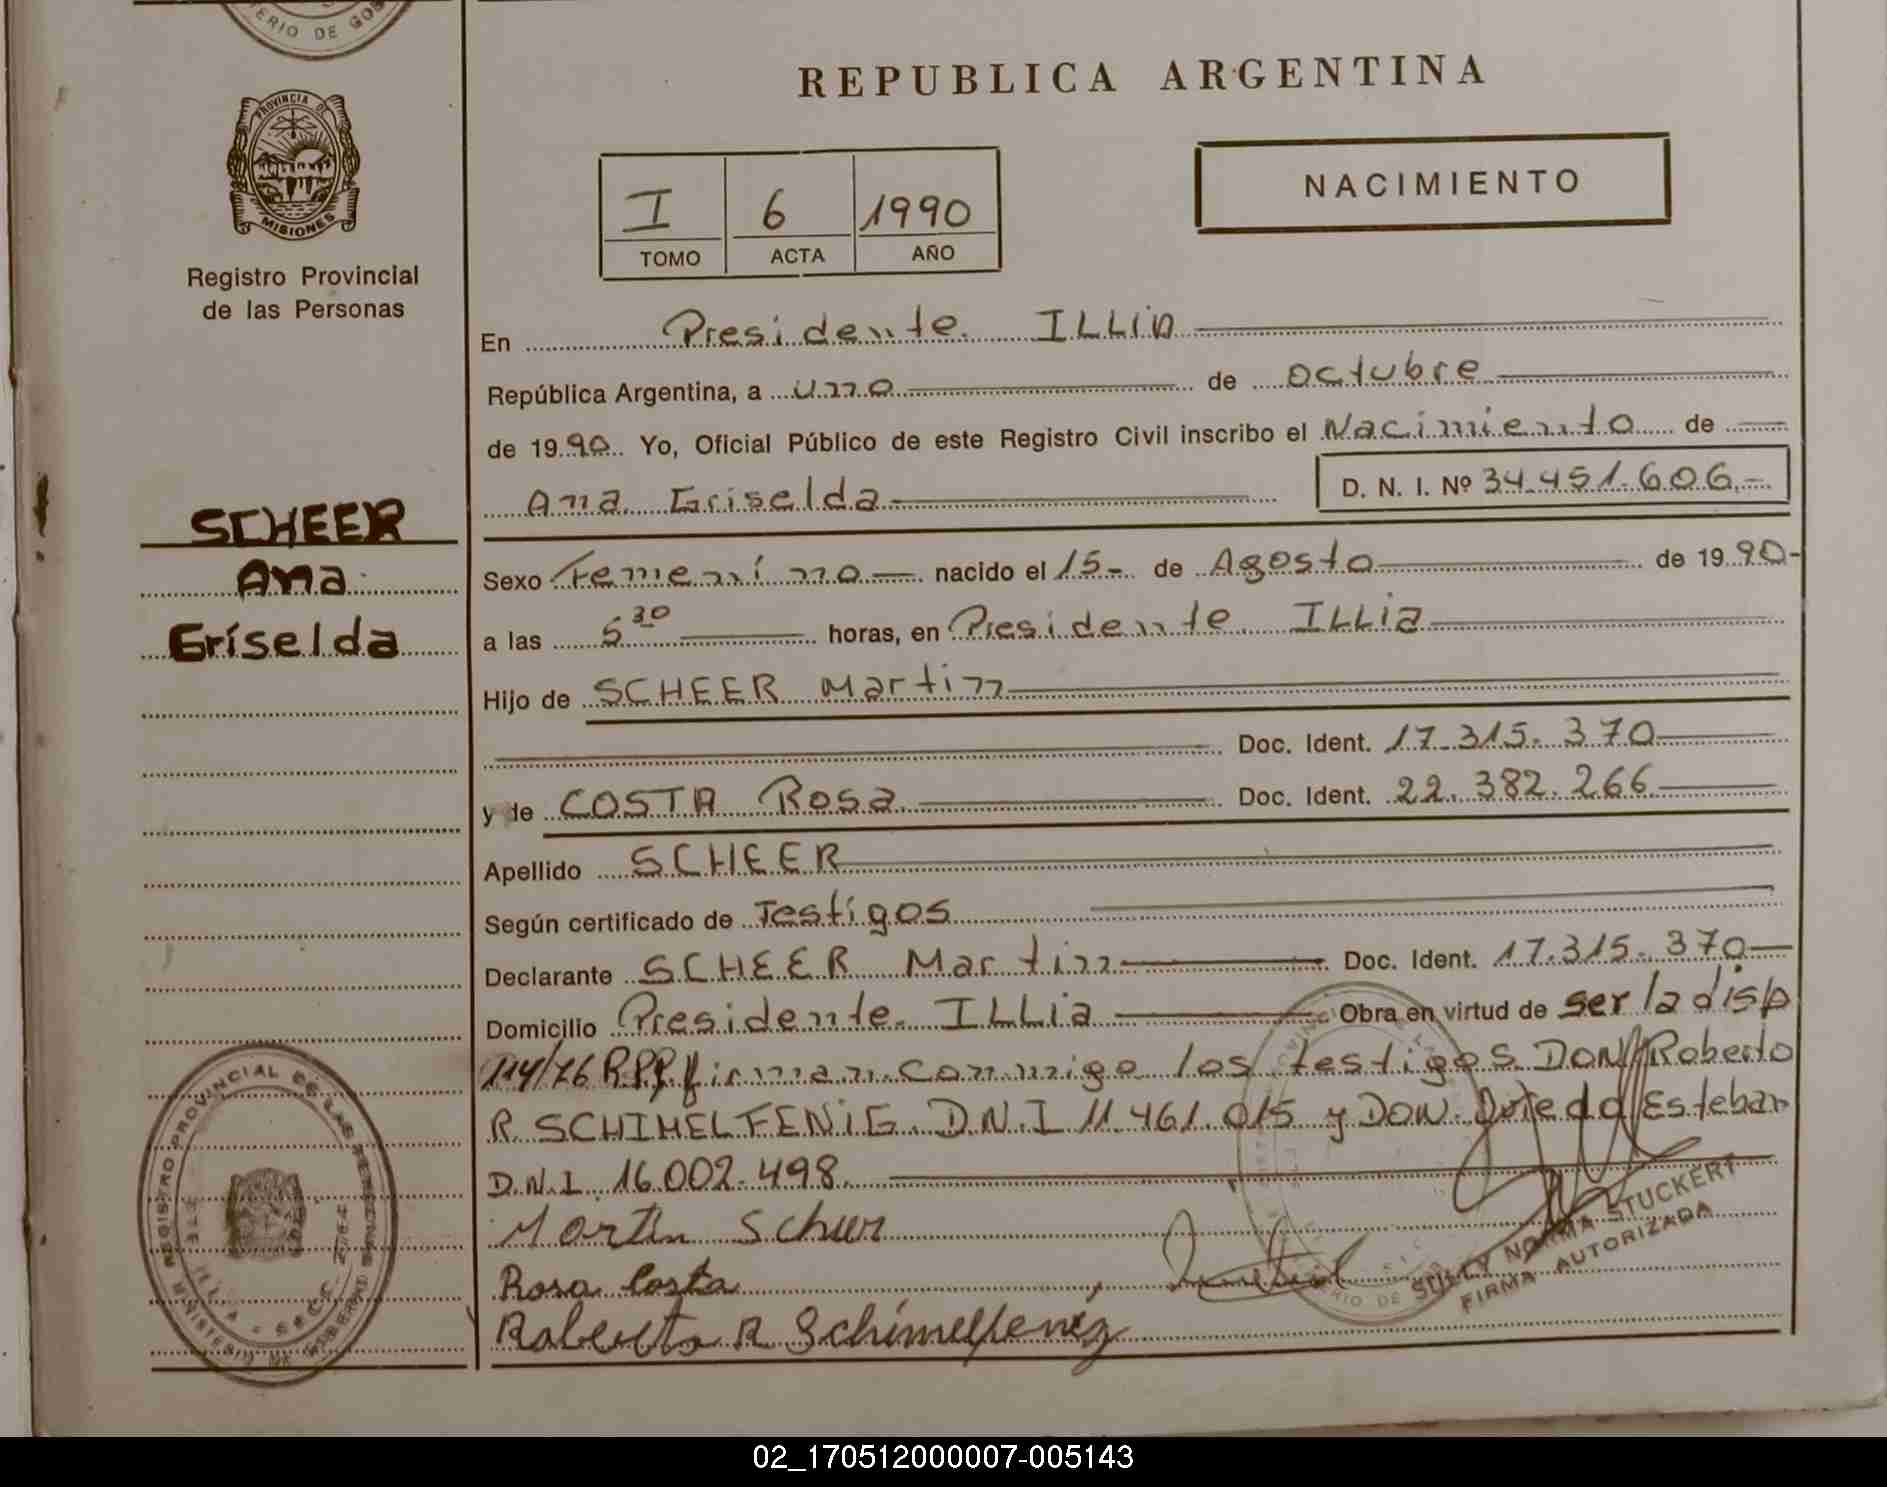 ERIO DE GOB
PROVINCIA DE
MISIONES
Registro Provincial
de las Personas
SCHEER
Ana
Griselda
REPUBLICA ARGENTINA
NACIMIENTO
I 6 1990
TOMO ACTA AÑO
En Presidente ILLIA
República Argentina, a uno de octubre
de 1990 Yo, Oficial Público de este Registro Civil inscribo el Nacimiento de
Ana Griselda D. N. I. Nº 34.451.606.-
Sexo Femenino nacido el 15- de Agosto de 1990-
a las 5 30 horas, en Presidente ILLia
Hijo de SCHEER Martin
Doc. Ident. 17.315.370
y de COSTA Rosa Doc. Ident. 22.382.266
Apellido SCHEER
Según certificado de Testigos
Declarante SCHEER Martin Doc. Ident. 17.315.370
Domicilio Presidente ILLia Obra en virtud de ser la disp
114/76 R.P.P. firman conmigo los testigos DON Roberto
R. SCHIMELFENIG D.N.I 11.461.015 y DON Esteban
D.N.I. 16.002.498
Martin Scheer
Rosa Costa
Roberto R Schimelfenig
NORMA STUCKERT
FIRMA AUTORIZADA
REGISTRO PROVINCIAL DE LAS PERSONAS
MINISTERIO DE GOBIERNO
02_170512000007-005143